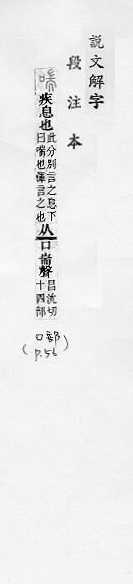 說文解字
段注本
喘
疾息也
此分別言之息下
曰喘也渾言之也
从口耑聲
昌沇切
十四部
口部
(p.56)